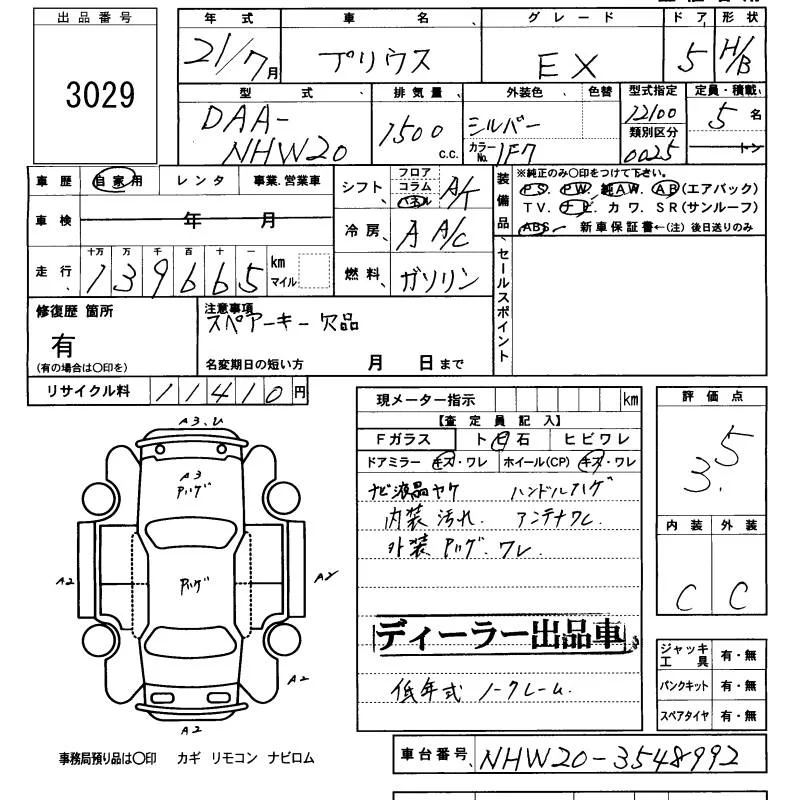 出品番号
3029
年式 車名 グレード ドア 形状
21/7月 プリウス EX 5 H/B
型式 排気量 外装色 色替 型式指定 定員・積載
DAA-NHW20 1500 c.c. シルバー カラーNo. 1F7 12100 5名
類別区分 0025 トン
車歴 自家用 レンタ 事業.営業車
車検 年 月
走行 十万 万 千 百 十 一 km マイル
139665
シフト フロア コラム パネル A/T
冷房 A A/C
燃料 ガソリン
装備品 ※純正のみ〇印をつけて下さい。
PS. PW. 純AW. AB(エアバック)
TV. ナビ カワ. SR(サンルーフ)
ABS 新車保証書←(注) 後日送りのみ
セールスポイント
修復歴 箇所
有
(有の場合は〇印を)
注意事項
スペアーキー欠品
名変期日の短い方 月 日まで
リサイクル料 11410円
現メーター指示 km
【査定員記入】
Fガラス ト白石 ヒビワレ
ドアミラー キズ・ワレ ホイール(CP) キズ・ワレ
ナビ液晶ヤケ ハンドルハゲ
内装汚れ. アンテナワレ
外装ハゲ. ワレ
ディーラー出品車
低年式 ノークレーム.
評価点
3.5
内装 外装
C C
ジャッキ工具 有・無
パンクキット 有・無
スペアタイヤ 有・無
A3.U
A3
A2
A2
A2
A2
事務局預り品は〇印 カギ リモコン ナビロム
車台番号 NHW20-3548992